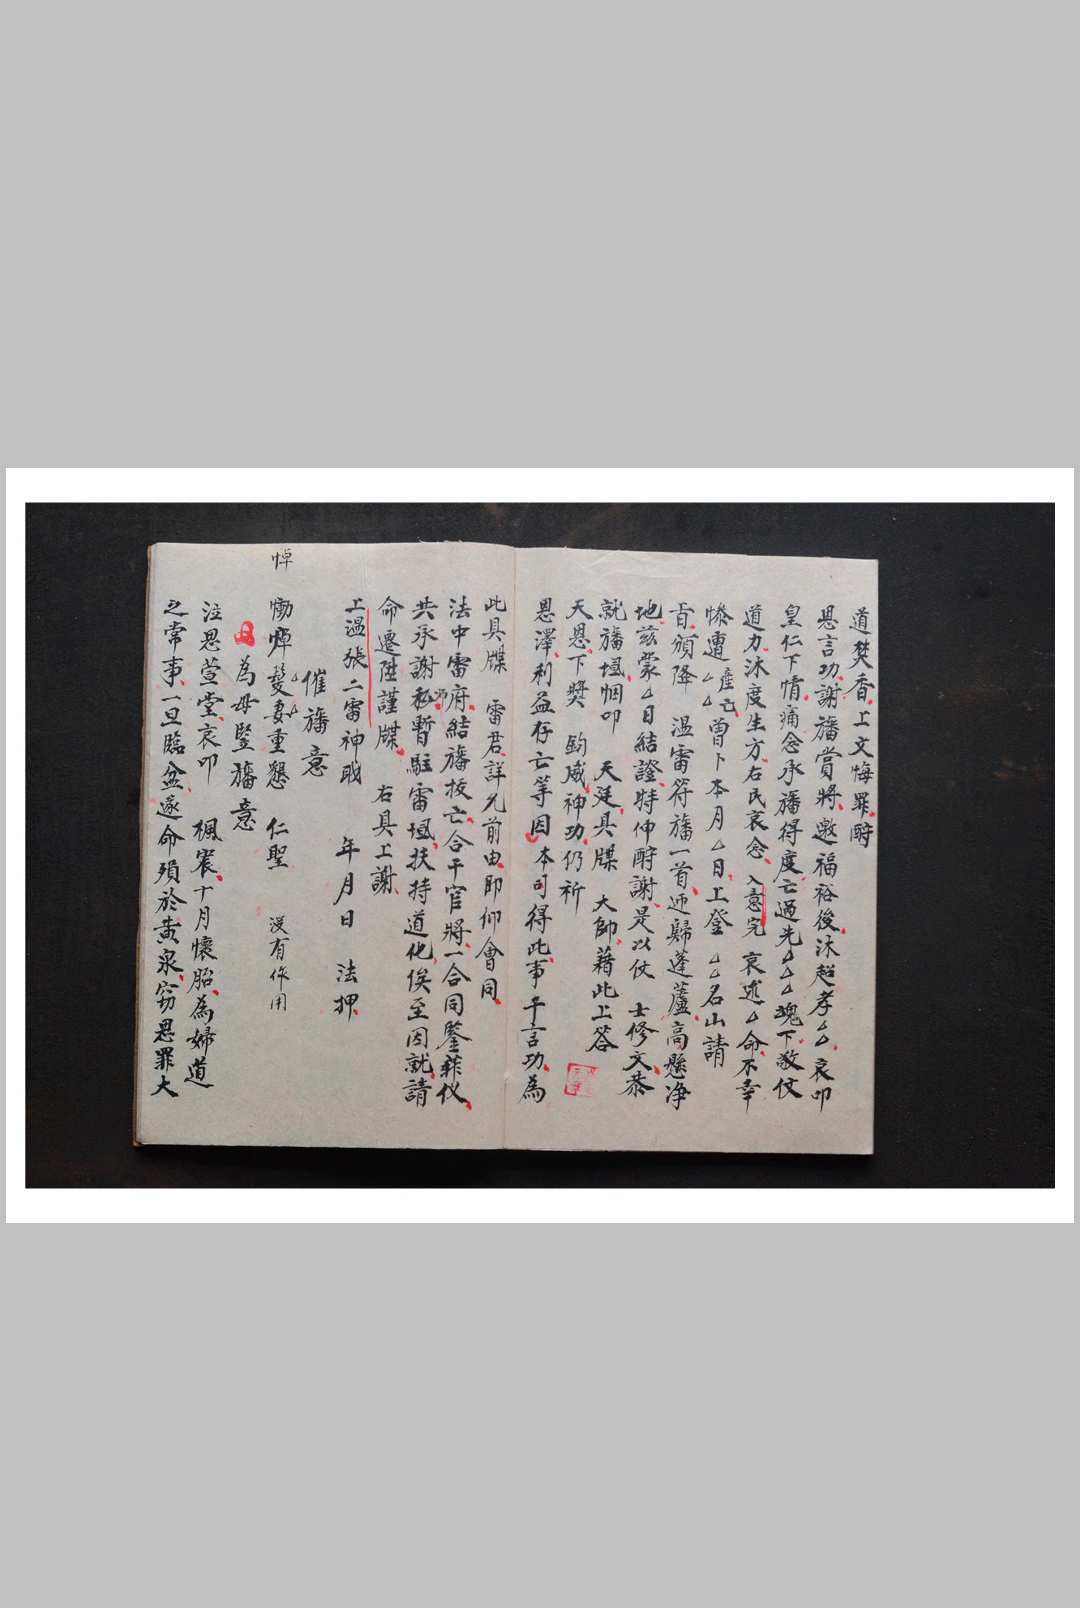 道焚香上文悔罪酧
恩言功謝旛賞將邀福裕後沐超孝△△哀叩
皇仁下情痛念承旛得度亡過先△△△魂下敬仗
道力沐度生方右民哀念入意完 哀述△命不幸
慘遭△△產亡曾卜本月△日上登△△名山請
旨頒降 温雷符旛一首迎歸蓬蘆高懸净
地兹蒙△日結證特伸酧謝是以仗 士修文恭
就旛壇悃叩 天廷具牒 大帥藉此上答
天恩下獎 鈞威神功仍祈
恩澤利益存亡等因本司得此事干言功為
此具牒 雷君詳允前由即仰會同
法中雷府結旛拔亡合干官將一合同鑒菲仪
共承謝私暫駐雷壇扶持道化俟至因就請
命遷陞謹牒 右具上謝
上温張二雷神戝 年月日 法押
催旛意
慟悼△△髮妻重懇 仁聖 没有作用
悼
為母豎旛意
注恩萱堂哀叩 楓宸十月懷胎為婦道
之常事一旦臨盆遂命殞於黄泉窃思罪大